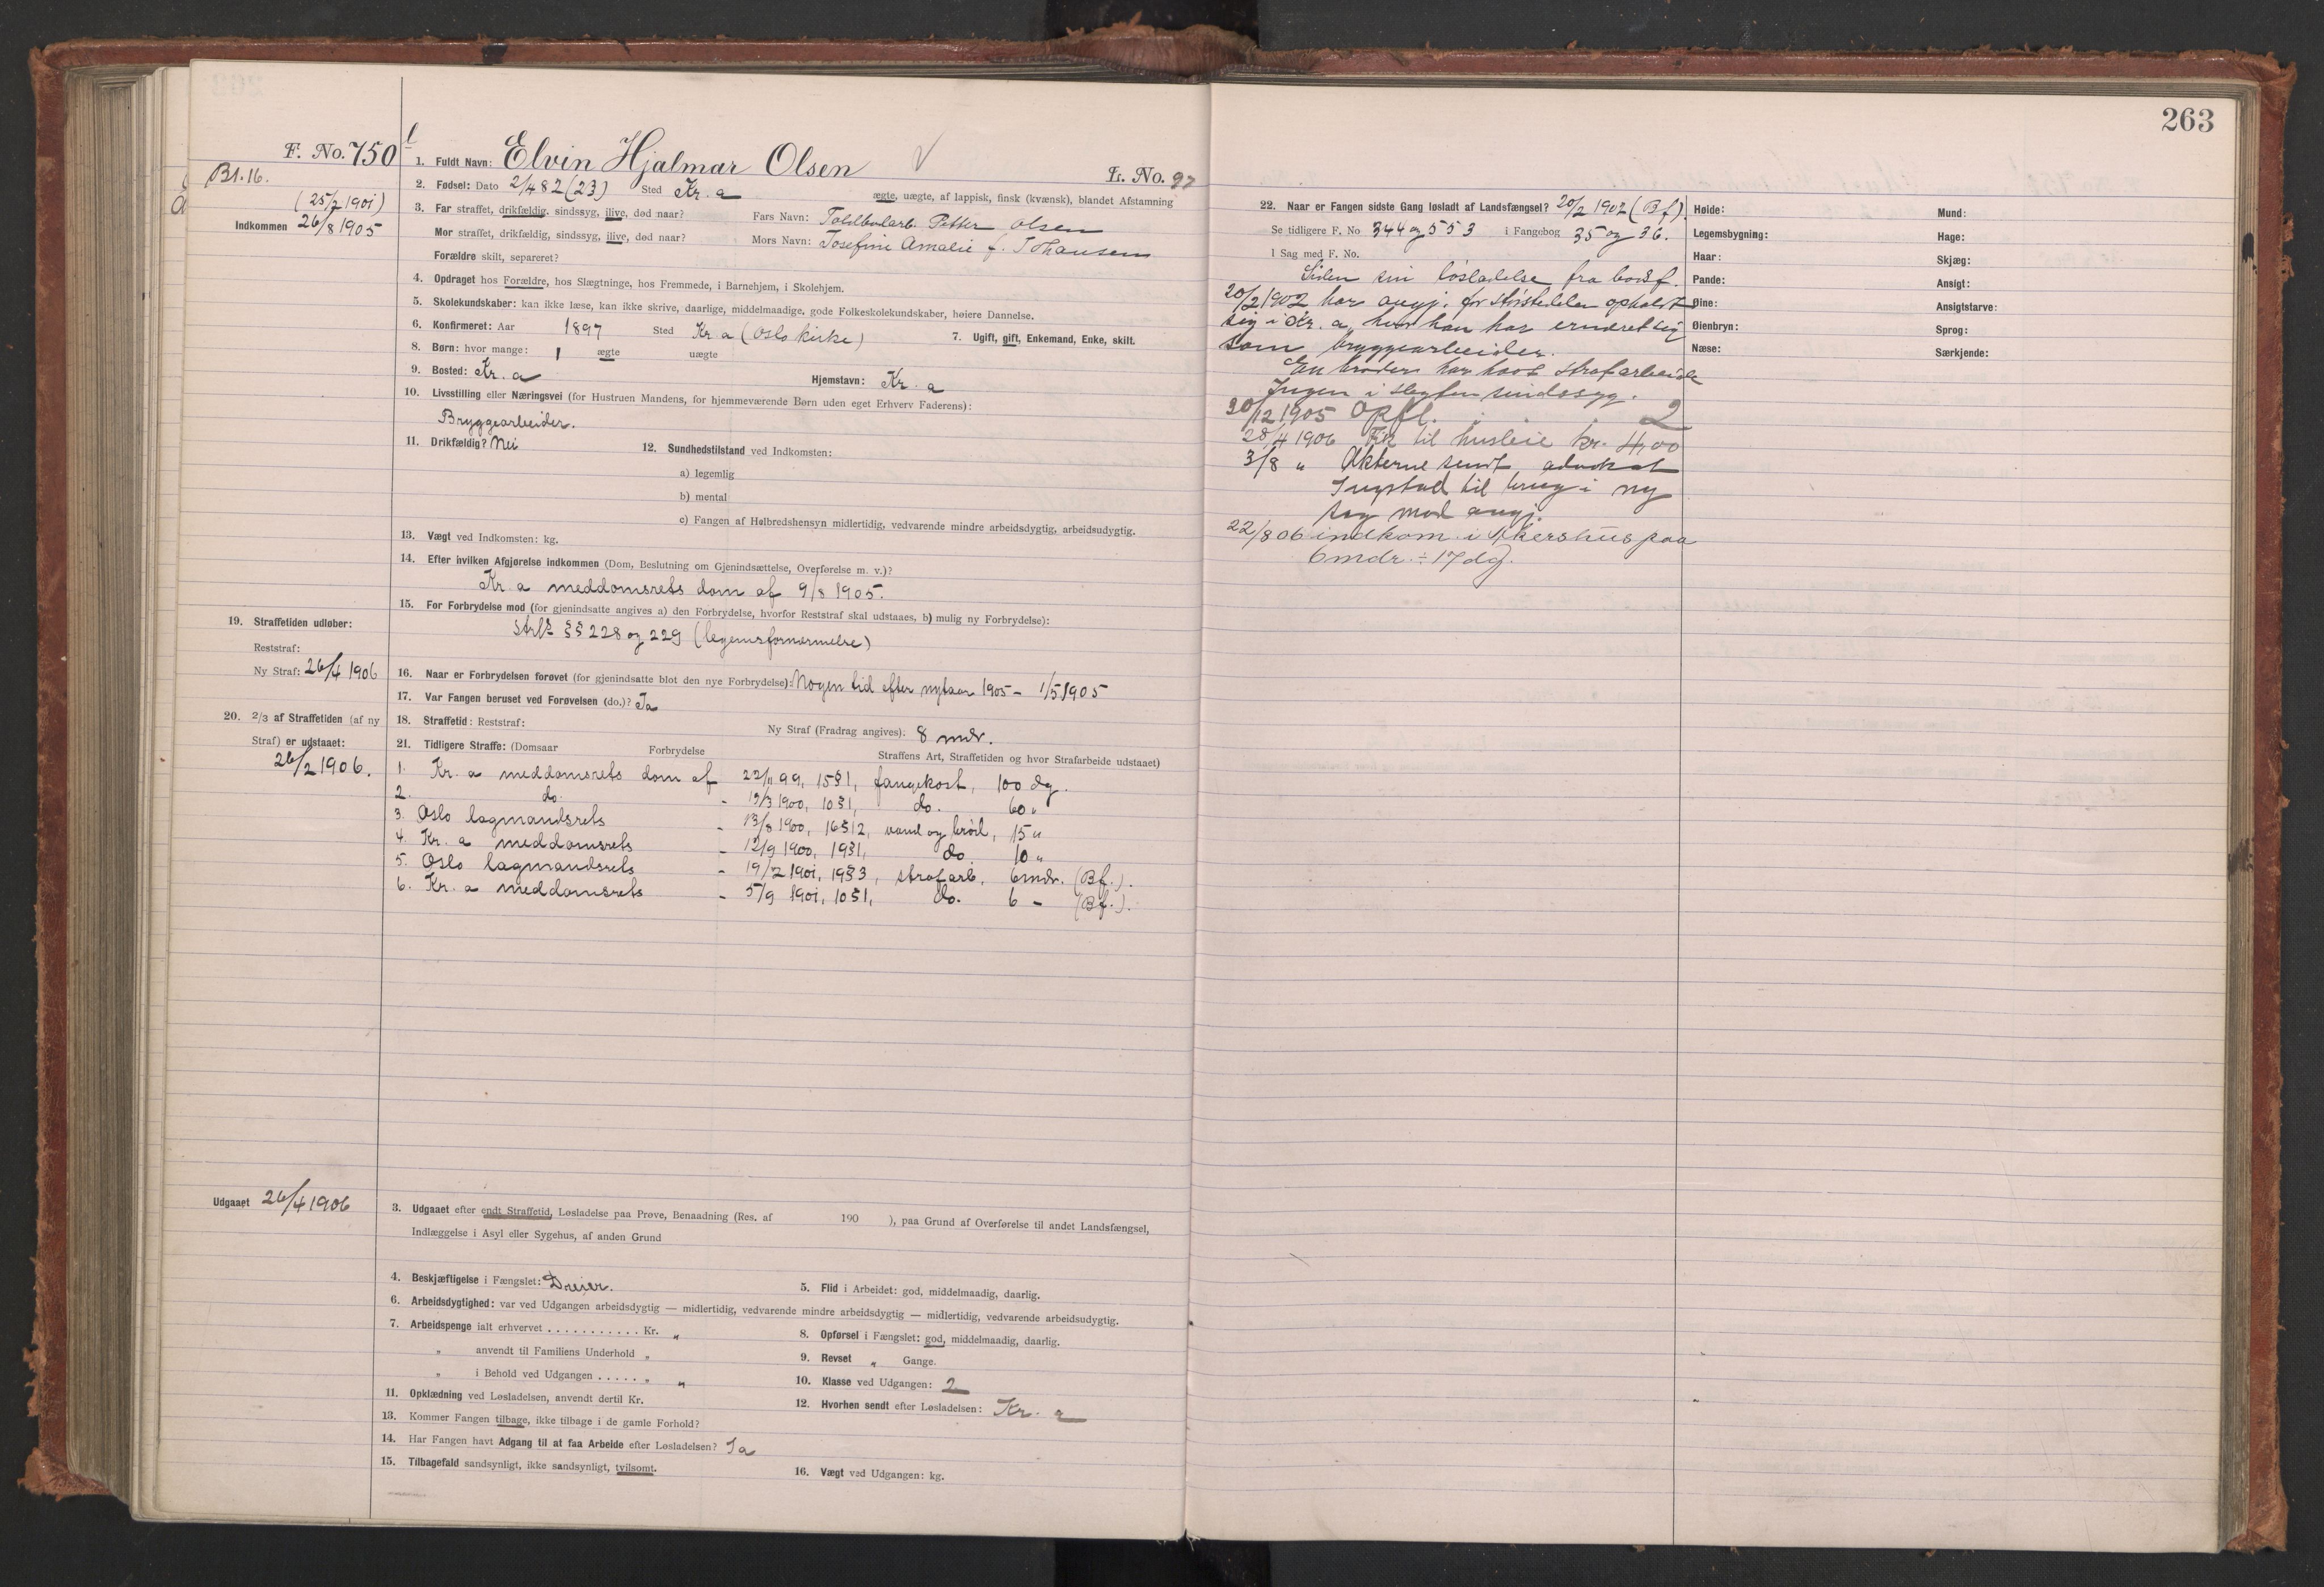 263
F. No. 750
1. Fuldt Navn: Elvin Hjalmar Olsen
L. No. 97
Bl. 16.
2. Fødsel: Dato 2/4 82 (23) Sted Kr.a ægte, uægte, af lappisk, finsk (kvænsk), blandet Afstamning
(25/2 1901)
Indkommen 26/8 1905
3. Far straffet, drikfældig, sindssyg, ilive, død naar? Fars Navn: Petter Olsen
Mor straffet, drikfældig, sindssyg, ilive, død naar? Mors Navn: Josefine Amalie f. Johansen
Forældre skilt, separeret?
4. Opdraget hos Forældre, hos Slægtninge, hos Fremmede, i Barnehjem, i Skolehjem.
5. Skolekundskaber: kan ikke læse, kan ikke skrive, daarlige, middelmaadige, gode Folkeskolekundskaber, høiere Dannelse.
6. Konfirmeret: Aar 1897 Sted Kr.a (Oslo kirke) 7. Ugift, gift, Enkemand, Enke, skilt.
8. Børn: hvor mange: 1 ægte uægte
9. Bosted: Kr.a Hjemstavn: Kr.a
10. Livsstilling eller Næringsvei (for Hustruen Mandens, for hjemmeværende Børn uden eget Erhverv Faderens):
Bryggearbeider.
11. Drikfældig? Nei 12. Sundhedstilstand ved Indkomsten:
a) legemlig
b) mental
c) Fangen af Helbredshensyn midlertidig, vedvarende mindre arbeidsdygtig, arbeidsudygtig.
13. Vægt ved Indkomsten: kg.
14. Efter hvilken Afgjørelse indkommen (Dom, Beslutning om Gjenindsættelse, Overførelse m. v.)?
Kr.a meddomsrets dom af 9/8 1905.
15. For Forbrydelse mod (for gjenindsatte angives a) den Forbrydelse, hvorfor Reststraf skal udstaaes, b) mulig ny Forbrydelse):
strfl. §§ 228 og 229 (legemsfornærmelse)
19. Straffetiden udløber:
Reststraf:
Ny Straf: 26/4 1906
16. Naar er Forbrydelsen forøvet (for gjenindsatte blot den nye Forbrydelse): Nogen tid efter nytaar 1905 – 1/5 1905
17. Var Fangen beruset ved Forøvelsen (do.)? Ja
20. 2/3 af Straffetiden (af ny
Straf) er udstaaet:
26/2 1906.
18. Straffetid: Reststraf: Ny Straf (Fradrag angives): 8 mdr.
21. Tidligere Straffe: (Domsaar Forbrydelse Straffens Art, Straffetiden og hvor Strafarbeide udstaaet)
1. Kr.a meddomsrets dom af 22/11 99, 15§1, fangekost, 100 dg.
2. do. - 19/3 1900, 10§1, do. 60 "
3. Oslo lagmandsrets - 13/8 1900, 16§12, vand og brød, 15 "
4. Kr.a meddomsrets - 12/9 1900, 19§1, do. 10 "
5. Oslo lagmandsrets - 19/2 1901, 19§3, strafarb. 6 mdr. (Bf.).
6. Kr.a meddomsrets - 5/9 1901, 10§1, do. 6 – (Bf.).
Udgaaet 26/4 1906
3. Udgaaet efter endt Straffetid, Løsladelse paa Prøve, Benaadning (Res. af 190 ), paa Grund af Overførelse til andet Landsfængsel,
Indlæggelse i Asyl eller Sygehus, af anden Grund
4. Beskjæftigelse i Fængslet: Dreier. 5. Flid i Arbeidet: god, middelmaadig, daarlig.
6. Arbeidsdygtighed: var ved Udgangen arbeidsdygtig — midlertidig, vedvarende mindre arbeidsdygtig — midlertidig, vedvarende arbeidsudygtig.
7. Arbeidspenge ialt erhvervet . . . . . . . . . . . Kr. " 8. Opførsel i Fængslet: god, middelmaadig, daarlig.
" anvendt til Familiens Underhold " 9. Revset " Gange.
" i Behold ved Udgangen . . . . . " " 10. Klasse ved Udgangen: 2
11. Opklædning ved Løsladelsen, anvendt dertil Kr. 12. Hvorhen sendt efter Løsladelsen: Kr.a
13. Kommer Fangen tilbage, ikke tilbage i de gamle Forhold?
14. Har Fangen havt Adgang til at faa Arbeide efter Løsladelsen? Ja
15. Tilbagefald sandsynligt, ikke sandsynligt, tvilsomt. 16. Vægt ved Udgangen: kg.
22. Naar er Fangen sidste Gang løsladt af Landsfængsel? 20/2 1902 (Bf).
Se tidligere F. No 344 og 553 i Fangebog 35 og 36.
I Sag med F. No.
Siden sin løsladelse fra bodsf.
20/2 1902 har angj. for størstedelen opholdt
sig i Kr.a, hvor han har ernæret sig
som bryggearbeider.
En broder har havt strafarbeide
Ingen i slegten sindssyg.
20/12 1905 Opfl. 2
28/4 1906 Fik til husleie kr. 4,00
3/8 " Akterne sendt advokat
til brug i ny
sag mod angj.
22/8 06 indkom i Akershus paa
6 mdr. ÷ 17 dg.
Høide: Mund:
Legemsbygning: Hage:
Haar: Skjæg:
Pande: Ansigt:
Øine: Ansigtsfarve:
Øienbryn: Sprog:
Næse: Særkjende: